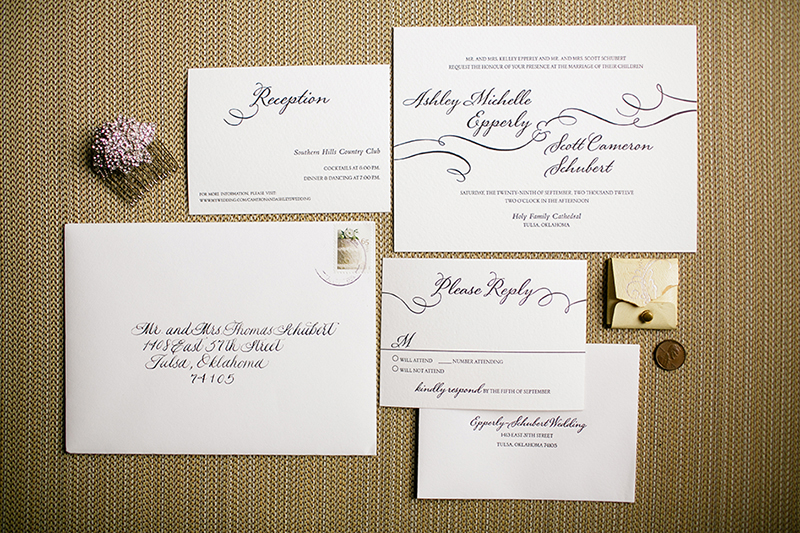 Reception
Southern Hills Country Club
COCKTAILS AT 6:00 PM.
DINNER & DANCING AT 7:00 PM.
FOR MORE INFORMATION, PLEASE VISIT:
MR. AND MRS. KELSEY EPPERLY AND MR. AND MRS. SCOTT SCHUBERT
REQUEST THE HONOUR OF YOUR PRESENCE AT THE MARRIAGE OF THEIR CHILDREN
Ashley Michelle
Epperly
&
Scott Cameron
Schubert
SATURDAY, THE TWENTY-NINTH OF SEPTEMBER, TWO THOUSAND TWELVE
TWO O'CLOCK IN THE AFTERNOON
Holy Family Cathedral
TULSA, OKLAHOMA
Mr and Mrs Thomas Schubert
1408 East 37th Street
Tulsa, Oklahoma
74105
Please Reply
M
WILL ATTEND ____ NUMBER ATTENDING
WILL NOT ATTEND
kindly respond BY THE FIFTH OF SEPTEMBER
Epperly-Schubert Wedding
EAST STREET
TULSA, OKLAHOMA